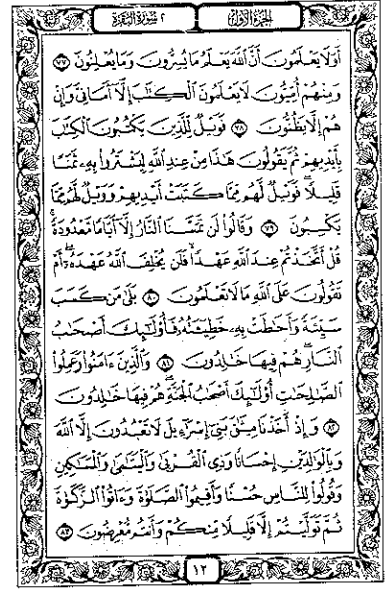 الجزء الأول
٢ سورة البقرة
أَوَلَا يَعْلَمُونَ أَنَّ ٱللَّهَ يَعْلَمُ مَا يُسِرُّونَ وَمَا يُعْلِنُونَ ٧٧
وَمِنْهُمْ أُمِّيُّونَ لَا يَعْلَمُونَ ٱلْكِتَٰبَ إِلَّآ أَمَانِيَّ وَإِنْ
هُمْ إِلَّا يَظُنُّونَ ٧٨ فَوَيْلٌ لِّلَّذِينَ يَكْتُبُونَ ٱلْكِتَٰبَ
بِأَيْدِيهِمْ ثُمَّ يَقُولُونَ هَٰذَا مِنْ عِندِ ٱللَّهِ لِيَشْتَرُوا۟ بِهِۦ ثَمَنًا
قَلِيلًا ۖ فَوَيْلٌ لَّهُم مِّمَّا كَتَبَتْ أَيْدِيهِمْ وَوَيْلٌ لَّهُم مِّمَّا
يَكْسِبُونَ ٧٩ وَقَالُوا۟ لَن تَمَسَّنَا ٱلنَّارُ إِلَّآ أَيَّامًا مَّعْدُودَةً ۚ
قُلْ أَتَّخَذْتُمْ عِندَ ٱللَّهِ عَهْدًا فَلَن يُخْلِفَ ٱللَّهُ عَهْدَهُۥٓ ۖ أَمْ
تَقُولُونَ عَلَى ٱللَّهِ مَا لَا تَعْلَمُونَ ٨٠ بَلَىٰ مَن كَسَبَ
سَيِّئَةً وَأَحَٰطَتْ بِهِۦ خَطِيٓـَٔتُهُۥ فَأُو۟لَٰٓئِكَ أَصْحَٰبُ
ٱلنَّارِ ۖ هُمْ فِيهَا خَٰلِدُونَ ٨١ وَٱلَّذِينَ ءَامَنُوا۟ وَعَمِلُوا۟
ٱلصَّٰلِحَٰتِ أُو۟لَٰٓئِكَ أَصْحَٰبُ ٱلْجَنَّةِ ۖ هُمْ فِيهَا خَٰلِدُونَ
٨٢ وَإِذْ أَخَذْنَا مِيثَٰقَ بَنِىٓ إِسْرَٰٓءِيلَ لَا تَعْبُدُونَ إِلَّا ٱللَّهَ
وَبِٱلْوَٰلِدَيْنِ إِحْسَانًا وَذِى ٱلْقُرْبَىٰ وَٱلْيَتَٰمَىٰ وَٱلْمَسَٰكِينِ
وَقُولُوا۟ لِلنَّاسِ حُسْنًا وَأَقِيمُوا۟ ٱلصَّلَوٰةَ وَءَاتُوا۟ ٱلزَّكَوٰةَ
ثُمَّ تَوَلَّيْتُمْ إِلَّا قَلِيلًا مِّنكُمْ وَأَنتُم مُّعْرِضُونَ ٨٣
١٢